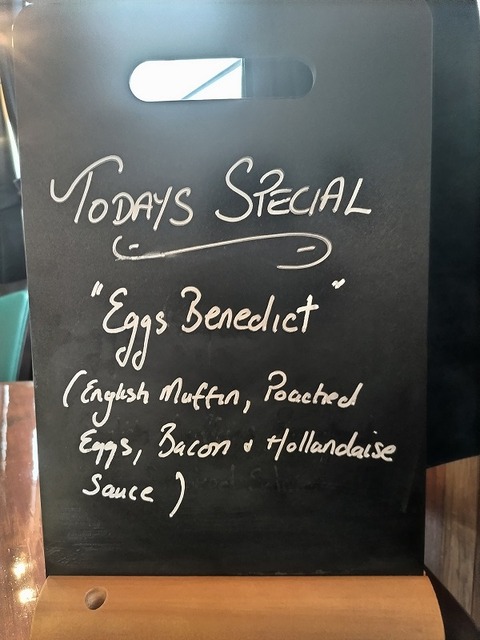 TODAYS SPECIAL
"Eggs Benedict"
(English Muffin, Poached
Eggs, Bacon & Hollandaise
Sauce)